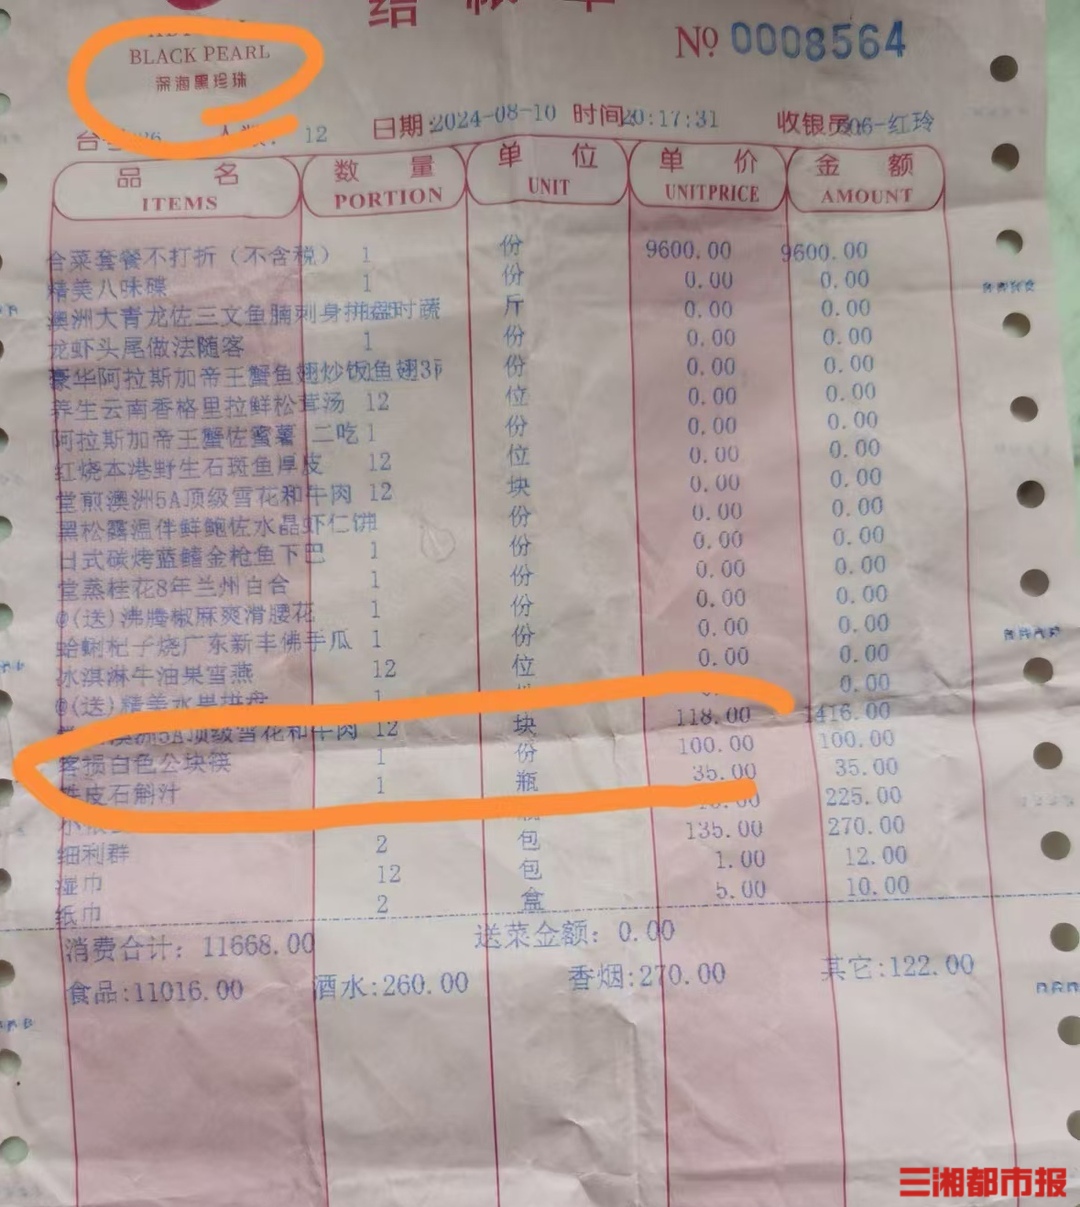 结 帐 单
BLACK PEARL
深海黑珍珠
Nº 0008564
12 日期:2024-08-10 时间20:17:31 收银员 06-红玲
品 名 数 量 单 位 单 价 金 额
ITEMS PORTION UNIT UNITPRICE AMOUNT
合菜套餐不打折（不含税） 1 份 9600.00 9600.00
精美八味碟 1 份 0.00 0.00
澳洲大青龙佐三文鱼腩刺身拼盘时蔬 斤 0.00 0.00
龙虾头尾做法随客 1 份 0.00 0.00
豪华阿拉斯加帝王蟹鱼翅炒饭 鱼翅3 份 0.00 0.00
养生云南香格里拉鲜松茸汤 12 位 0.00 0.00
阿拉斯加帝王蟹佐蜜薯 二吃 1 份 0.00 0.00
红烧本港野生石斑鱼厚皮 12 位 0.00 0.00
堂煎澳洲5A顶级雪花和牛肉 12 块 0.00 0.00
黑松露温伴鲜鲍佐水晶虾仁饼 份 0.00 0.00
日式碳烤蓝鳍金枪鱼下巴 1 份 0.00 0.00
堂蒸桂花8年兰州百合 1 份 0.00 0.00
@(送)沸腾椒麻爽滑腰花 1 份 0.00 0.00
蛤蜊杞子烧广东新丰佛手瓜 1 份 0.00 0.00
冰淇淋牛油果雪燕 12 位 0.00 0.00
@(送)精美水果拼盘 1 0.00
澳洲5A顶级雪花和牛肉 12 块 118.00 1416.00
客损白色公块筷 1 份 100.00 100.00
铁皮石斛汁 1 瓶 35.00 35.00
225.00
细利群 2 包 135.00 270.00
湿巾 12 包 1.00 12.00
纸巾 2 盒 5.00 10.00
消费合计: 11668.00 送菜金额: 0.00
食品:11016.00 酒水:260.00 香烟:270.00 其它:122.00
三湘都市报